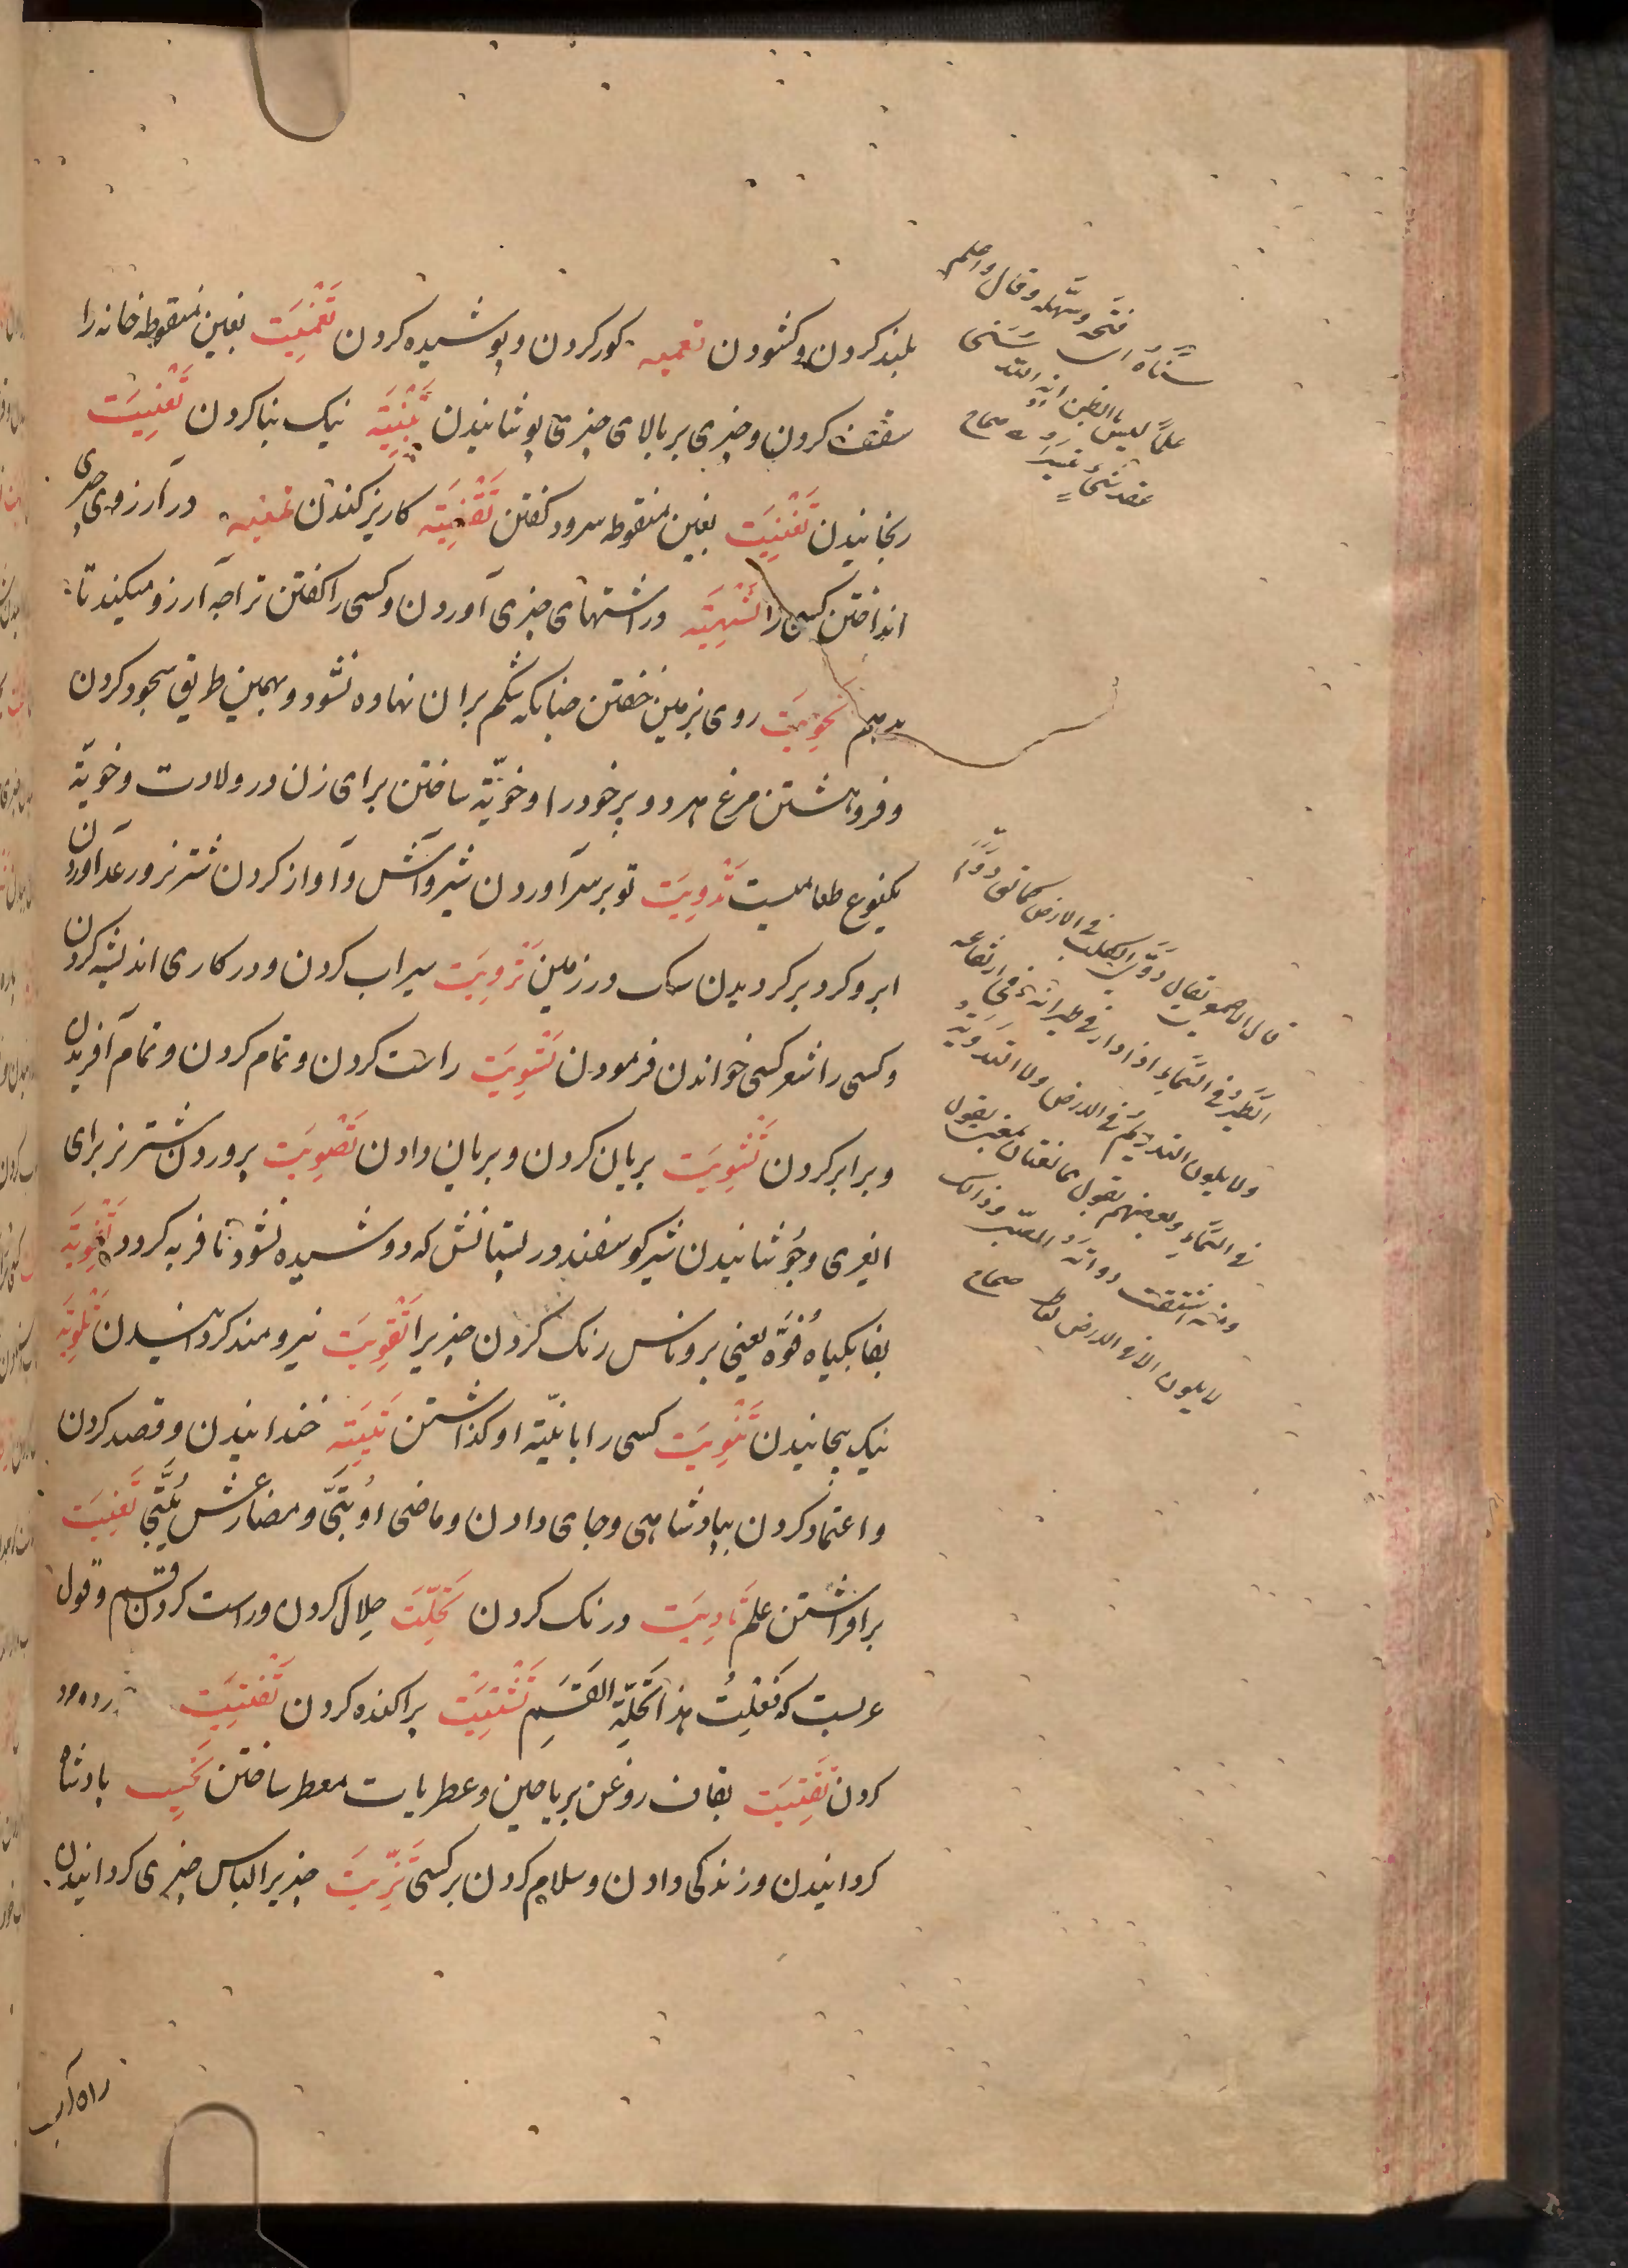 بلند کردن و کشودن تعمیه کور کردن و پوشیده کردن تَغْمِیَت بغین منقوطه خانه را
سقف کردن و چیزی بر بالای چیزی پوشانیدن تَبْنِیَة نیک بنا کردن تَعْنِیَت
رنجانیدن تَغْنِیَت بغین منقوطه سرود کفتن تَقْنِیَة کاریز کندن تمنیه در آرزوی چیزی
انداختن کسی را تَشْهِیَة در اشتهای چیزی آوردن و کسی را کفتن ترا چه آرزو میکند تا
بدهم تَخْوِیَت روی بزمین خفتن چنانکه شکم بران نهاده نشود و بهمین طریق سجود کردن
و فروهشتن مرغ هر دو پر خود را و خویّة ساختن برای زن در ولادت و خویّة
یکنوع طعامیست تَدْوِیَت تو بر سر آوردن شیر و آش و آواز کردن شتر نر و رعد آوردن
ابر و کرد بر کردیدن سک در زمین تَرْوِیَت سیراب کردن و در کاری اندیشه کردن
و کسی را شعر کسی خواندن فرمودن تَسْوِیَت راست کردن و تمام کردن و تمام آفریدن
و برابر کردن تَشْوِیَت بریان کردن و بریان دادن تَصْوِیَت پروردن شتر نر برای
انغری و جوشانیدن شیر کوسفند در پستانش که دوشیده نشود تا فربه کردد تَفْوِیَة
بفا بکیاه فُوَّه یعنی بروناس رنک کردن چیزیرا تَقْوِیَت نیرومند کردانیدن تَلْوِیَة
نیک پیچانیدن تَنْوِیَت کسی را با نیّة او کذاشتن تَبْیِیَة خندانیدن و قصد کردن
و اعتماد کردن بپادشاهی و جای دادن و ماضی او بَیَّی و مضارعش یُبَیِّی تَغْیِیَت
برافراشتن علم تَادِیَت درنک کردن تَحِلَّت حلال کردن و راست کردن قسم و قول
عربست که فَعَلتُ هذا تَحِلَّةَ القَسَمِ تَشْتِیَت پراکنده کردن تَفْتِیَت
کردن تَقْتِیَت بقاف روغن بریاحین و عطریات معطر ساختن تحیت پادشاه
کردانیدن و زندکی دادن و سلام کردن بر کسی تَزْیِیَت چیزیرا لباس چیزی کردانیدن
فتحه و سهله و قال
سَنَّاهُ اى
علماً لیس بالظن انه اللّه
عقد شئ تیسرا صحاح
قال الاصمعی یقال دَوَّى الکلب فی الارض کما یقال دَوَّمَ
الطَّیرُ فی السَّماءِ اذا دار فی طیرانه فی ارتفاعه
ولا یکون التدویمُ فی الارض ولا التدویَةُ
فی السّماءِ وبعضهم یقول هما لغتان بمعنى یقول
ومنه اشتقت دوامة الصبی وذلک
لا یکون الا فی الارض فقط صحاح
راه آب